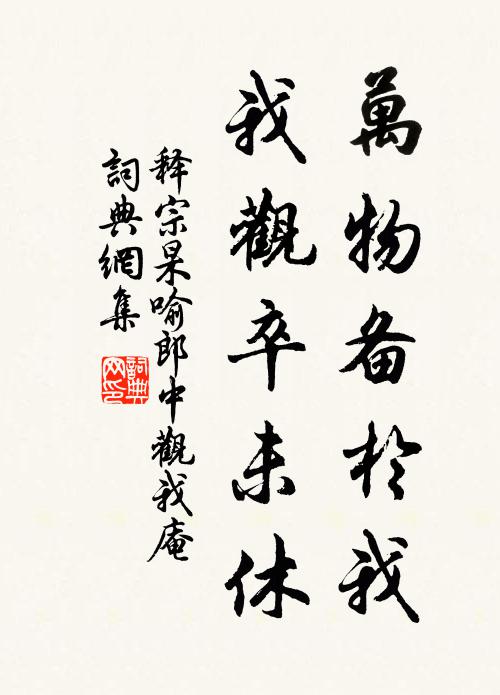 萬物备於我
我觀卒未休
释宗杲喻郎中觀我庵
詞典網集
詞典
网印